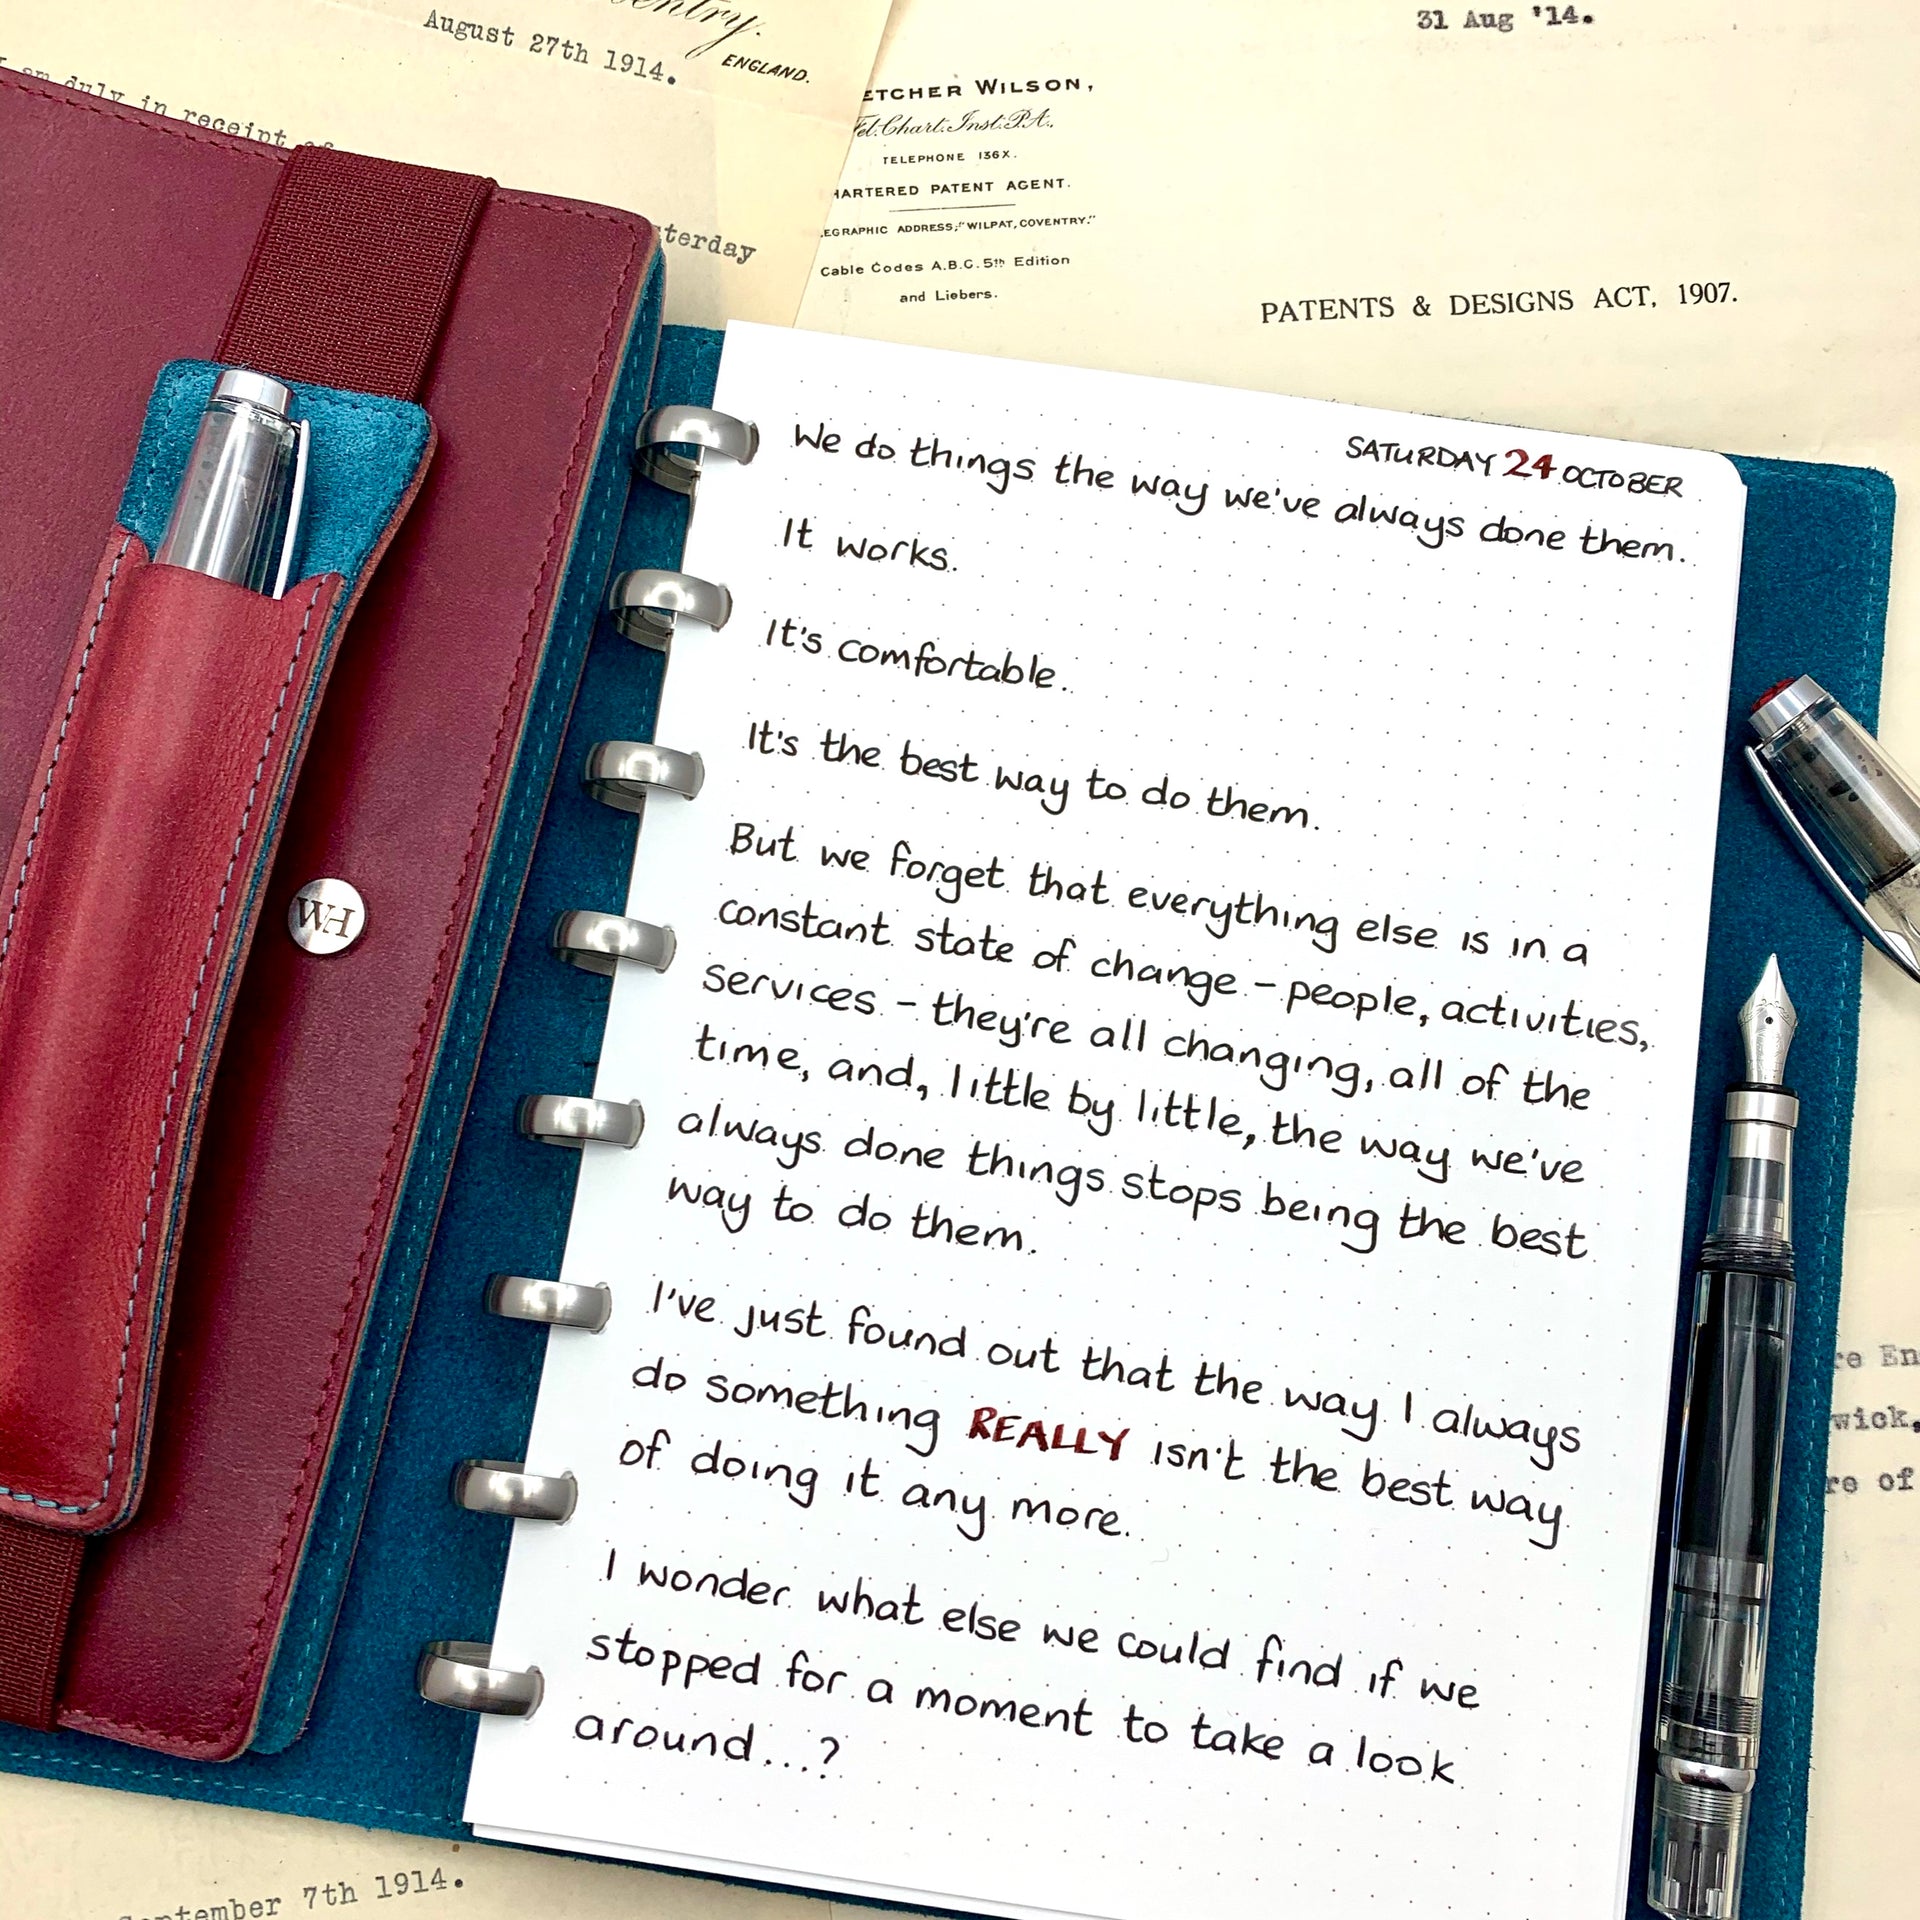 August 27th 1914.
ENGLAND.
duly in receipt of
31 Aug '14.
WILSON,
Fel. Chart. Inst. P.A.,
TELEPHONE 136X.
PATENT AGENT.
ADDRESS; "WILPAT, COVENTRY."
Cable Codes A.B.C. 5th Edition
and Liebers.
PATENTS & DESIGNS ACT, 1907.
WH
SATURDAY 24 OCTOBER
We do things the way we've always done them.
It works.
It's comfortable.
It's the best way to do them.
But we forget that everything else is in a
constant state of change - people, activities,
services - they're all changing, all of the
time, and, little by little, the way we've
always done things stops being the best
way to do them.
I've just found out that the way I always
do something REALLY isn't the best way
of doing it any more.
I wonder what else we could find if we
stopped for a moment to take a look
around...?
of
7th 1914.